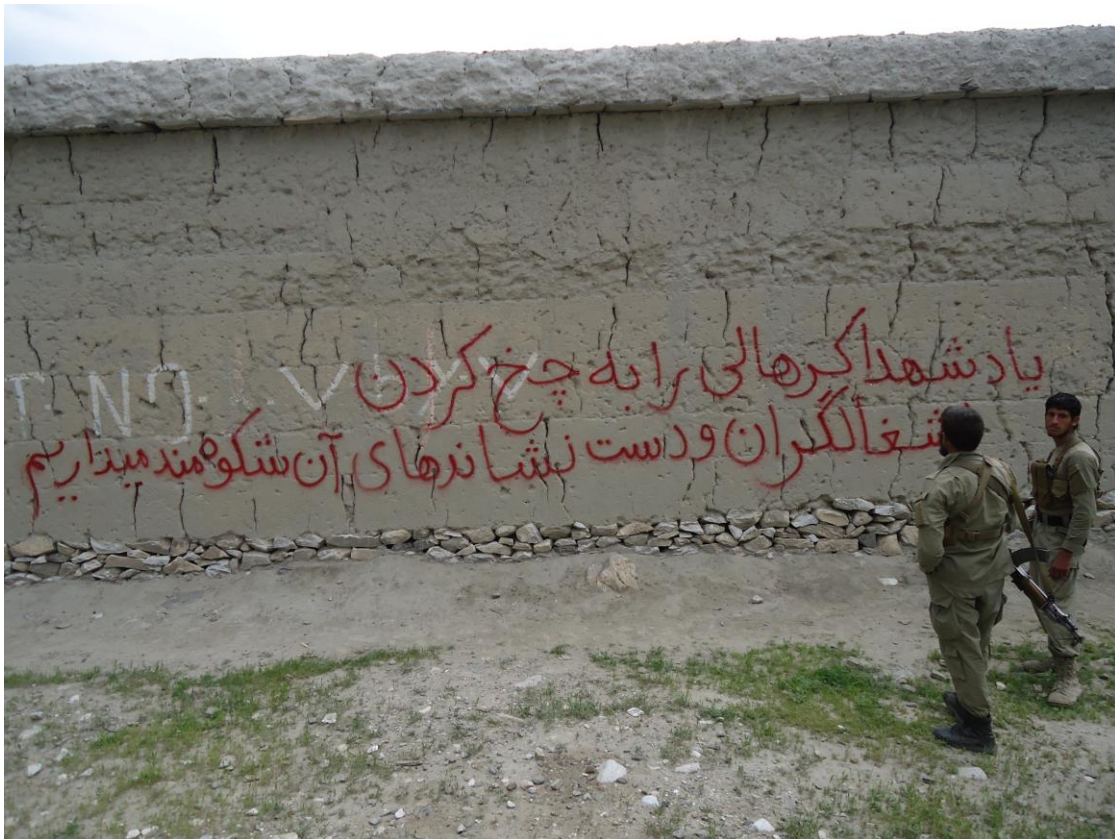 یاد شهدا کرهالی را به چخ کردن
شغالگران و دست نشاندهای آن شکوه مند میذاریم